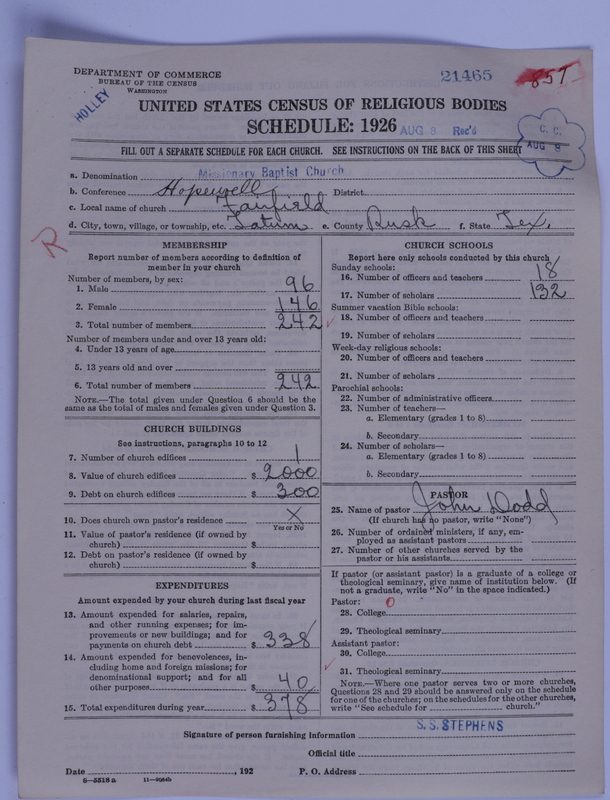 DEPARTMENT OF COMMERCE
BUREAU OF THE CENSUS
WASHINGTON
HOLLEY
21465
857
UNITED STATES CENSUS OF RELIGIOUS BODIES
SCHEDULE: 1926
AUG 8 Rec'd
C. C.
AUG 8
FILL OUT A SEPARATE SCHEDULE FOR EACH CHURCH. SEE INSTRUCTIONS ON THE BACK OF THIS SHEET
a. Denomination Missionary Baptist Church
b. Conference Hopewell District
c. Local name of church Fairfield
d. City, town, village, or township, etc. Tatum e. County Rusk f. State Tex.
R
MEMBERSHIP
Report number of members according to definition of member in your church
Number of members, by sex:
1. Male 96
2. Female 146
3. Total number of members 242
Number of members under and over 13 years old:
4. Under 13 years of age
5. 13 years old and over
6. Total number of members 242
NOTE.—The total given under Question 6 should be the
same as the total of males and females given under Question 3.
CHURCH BUILDINGS
See instructions, paragraphs 10 to 12
7. Number of church edifices 1
8. Value of church edifices $ 2000
9. Debt on church edifices $ 300
10. Does church own pastor's residence X
Yes or No
11. Value of pastor's residence (if owned by
church) $
12. Debt on pastor's residence (if owned by
church) $
EXPENDITURES
Amount expended by your church during last fiscal year
13. Amount expended for salaries, repairs,
and other running expenses; for im-
provements or new buildings; and for
payments on church debt $ 338
14. Amount expended for benevolences, in-
cluding home and foreign missions; for
denominational support; and for all
other purposes $ 40
15. Total expenditures during year $ 378
CHURCH SCHOOLS
Report here only schools conducted by this church
Sunday schools:
16. Number of officers and teachers 18
17. Number of scholars 132
Summer vacation Bible schools:
18. Number of officers and teachers
19. Number of scholars
Week-day religious schools:
20. Number of officers and teachers
21. Number of scholars
Parochial schools:
22. Number of administrative officers
23. Number of teachers—
a. Elementary (grades 1 to 8)
b. Secondary
24. Number of scholars—
a. Elementary (grades 1 to 8)
b. Secondary
PASTOR
25. Name of pastor John Dodd
(If church has no pastor, write "None")
26. Number of ordained ministers, if any, em-
ployed as assistant pastors
27. Number of other churches served by the
pastor or his assistants
If pastor (or assistant pastor) is a graduate of a college or
theological seminary, give name of institution below. (If
not a graduate, write "No" in the space indicated.)
Pastor: 0
28. College
29. Theological seminary
Assistant pastor:
30. College
31. Theological seminary
NOTE.—Where one pastor serves two or more churches,
Questions 28 and 29 should be answered only on the schedule
for one of the churches; on the schedules for the other churches,
write "See schedule for church."
S. S. STEPHENS
Signature of person furnishing information
Official title
Date , 192 P. O. Address